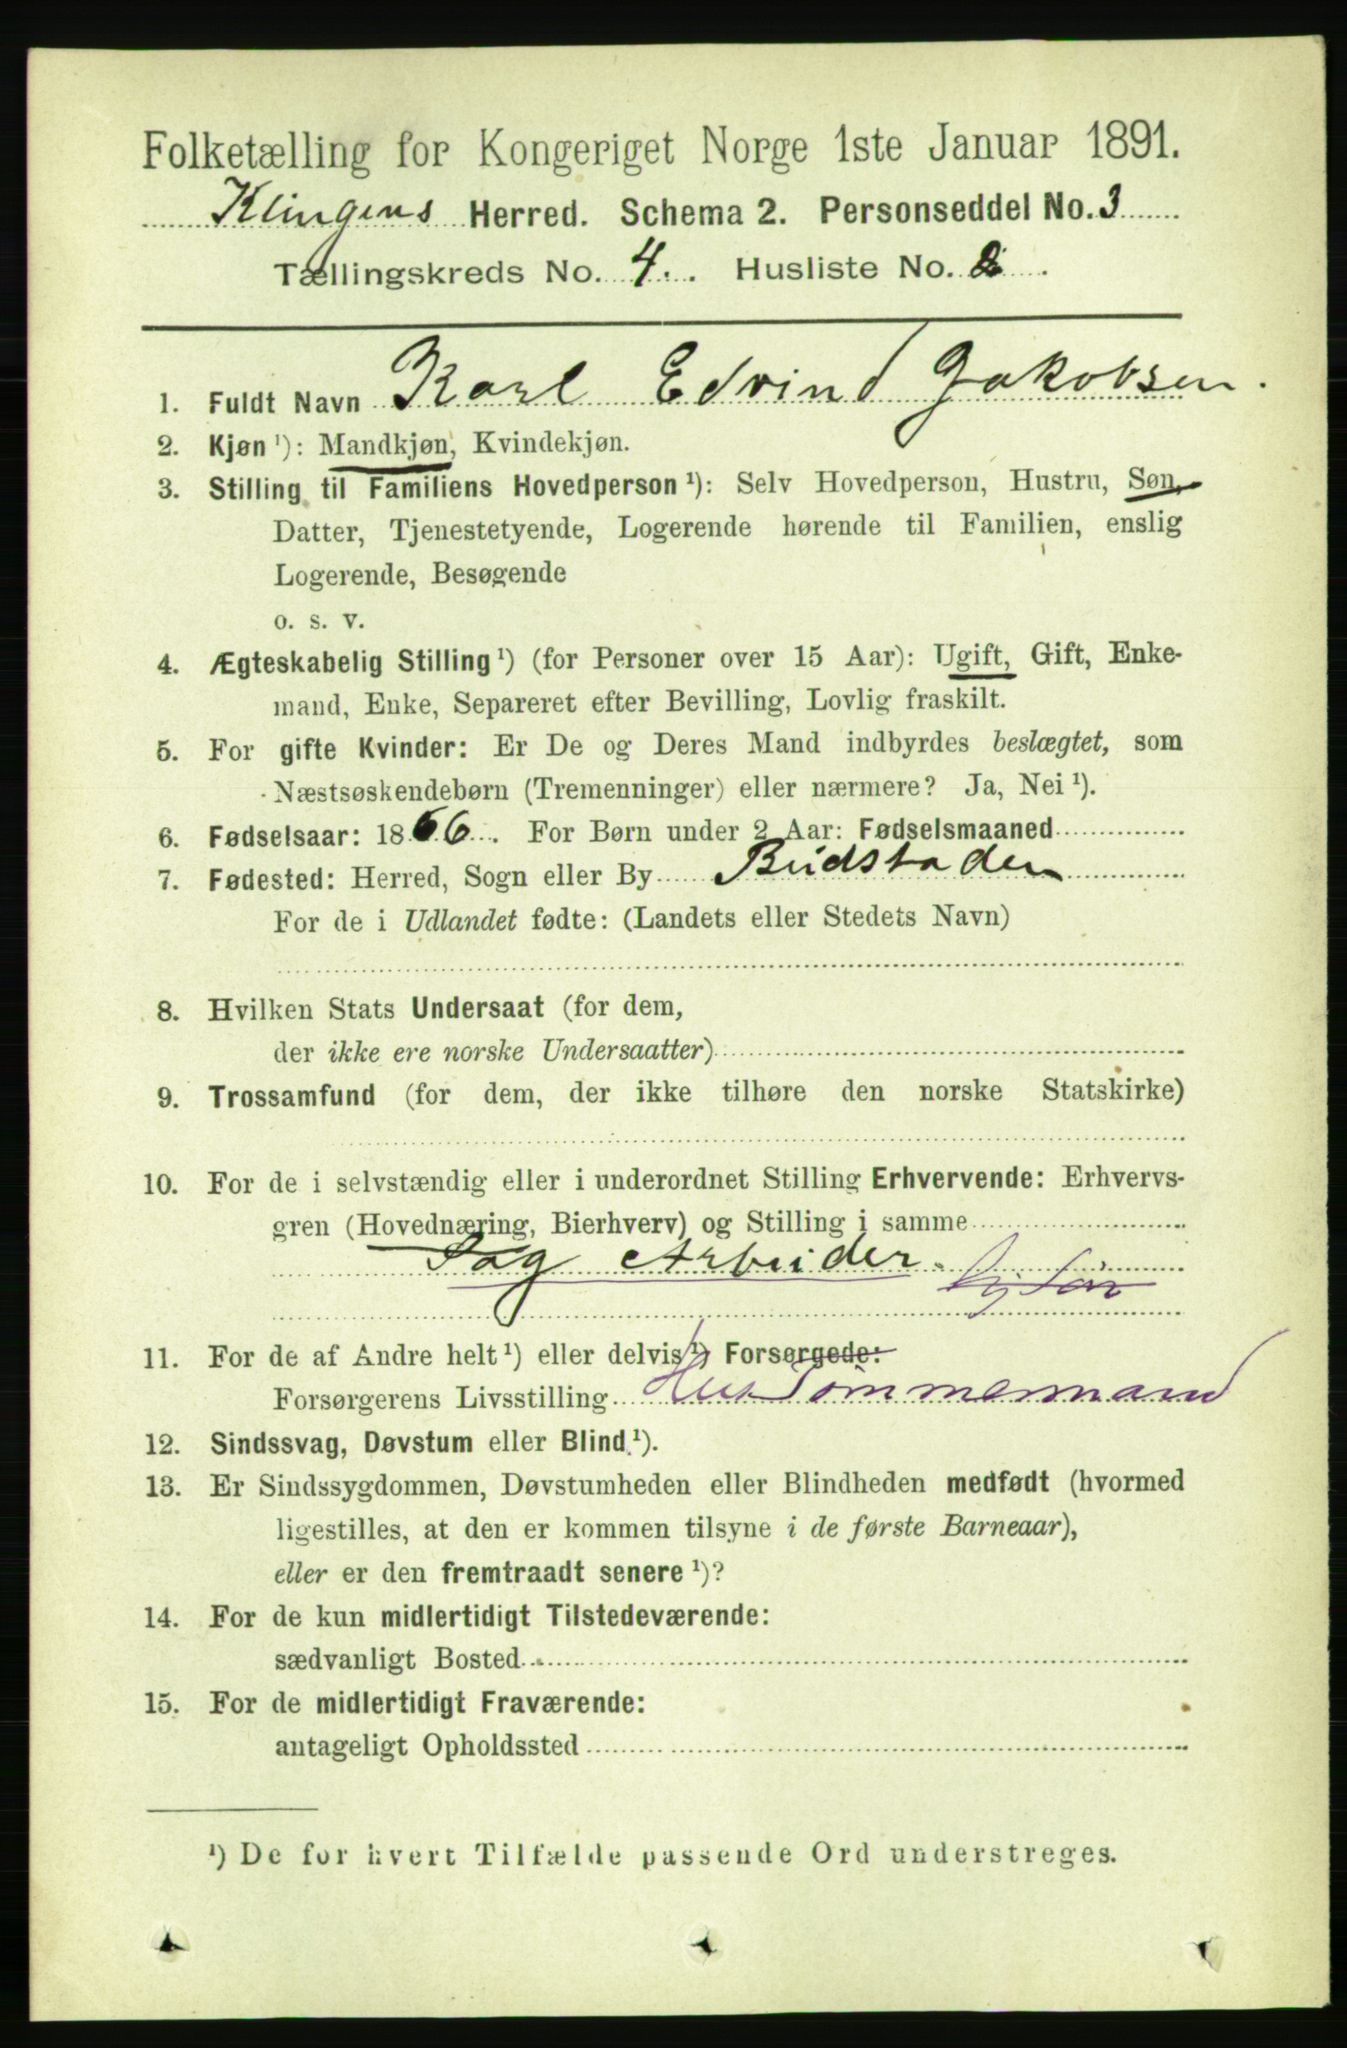 Folketælling for Kongeriget Norge 1ste Januar 1891.
Klingens Herred. Schema 2. Personseddel No. 3
Tællingskreds No. 4. Husliste No. 2
1. Fuldt Navn Karl Edvind Jakobsen.
2. Kjøn ¹): Mandkjøn, Kvindekjøn.
3. Stilling til Familiens Hovedperson ¹): Selv Hovedperson, Hustru, Søn,
Datter, Tjenestetyende, Logerende hørende til Familien, enslig
Logerende, Besøgende
o. s. v.
4. Ægteskabelig Stilling ¹) (for Personer over 15 Aar): Ugift, Gift, Enke-
mand, Enke, Separeret efter Bevilling, Lovlig fraskilt.
5. For gifte Kvinder: Er De og Deres Mand indbyrdes beslægtet, som
Næstsøskendebørn (Tremenninger) eller nærmere? Ja, Nei ¹).
6. Fødselsaar: 1866. For Børn under 2 Aar: Fødselsmaaned
7. Fødested: Herred, Sogn eller By Budstaden
For de i Udlandet fødte: (Landets eller Stedets Navn)
8. Hvilken Stats Undersaat (for dem,
der ikke ere norske Undersaatter)
9. Trossamfund (for dem, der ikke tilhøre den norske Statskirke)
10. For de i selvstændig eller i underordnet Stilling Erhvervende: Erhvervs-
gren (Hovednæring, Bierhverv) og Stilling i samme
Sag Arbeider.
11. For de af Andre helt ¹) eller delvis ¹) Forsørgede:
Forsørgerens Livsstilling Hus Tömmermand
12. Sindssvag, Døvstum eller Blind ¹).
13. Er Sindssygdommen, Døvstumheden eller Blindheden medfødt (hvormed
ligestilles, at den er kommen tilsyne i de første Barneaar),
eller er den fremtraadt senere ¹)?
14. For de kun midlertidigt Tilstedeværende:
sædvanligt Bosted
15. For de midlertidigt Fraværende:
antageligt Opholdssted
¹) De for hvert Tilfælde passende Ord understreges.